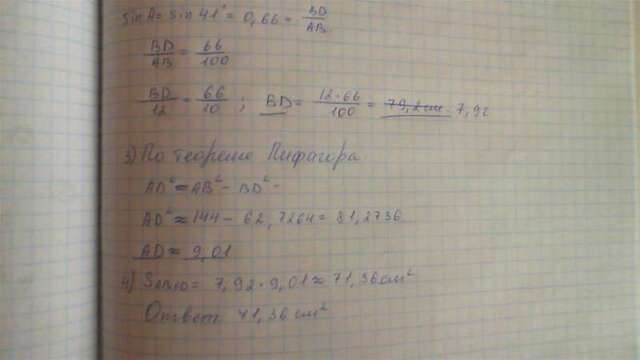 sin A = sin 41° = 0,66 = BD/AB
BD/AB = 66/100
BD/12 = 66/10 ; BD = 12·66/100 = 79,2 см 7,92
3) По теореме Пифагора
AD² = AB² - BD² -
AD² ≈ 144 - 62,7264 = 81,2736
AD ≈ 9,01
4) S = 7,92 · 9,01 ≈ 71,36 см²
Ответ 71,36 см²